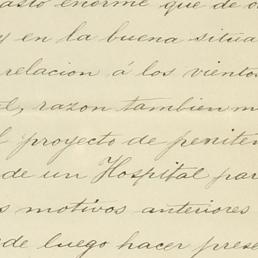 asto enorme que de o
y en la buena situa
relacion á los vientos
d, razon tambien m
l proyecto de peniten
de un Hospital par
s motivos anteriores
de luego hacer prese